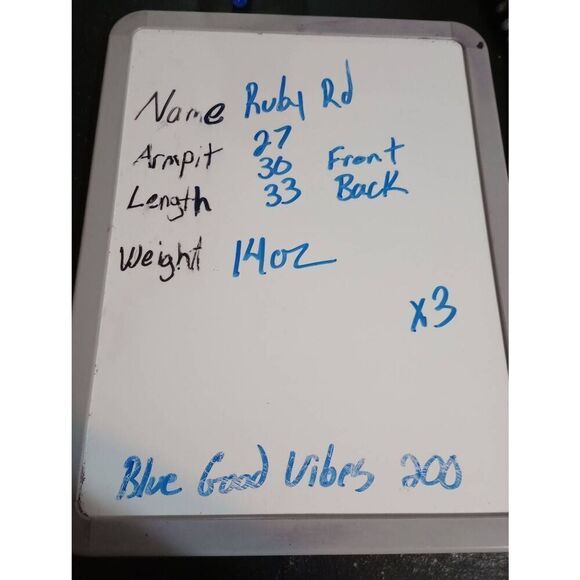 Name Ruby Rd
Armpit 27
30 Front
Length 33 Back
Weight 14oz
x3
Blue Good Vibes 200